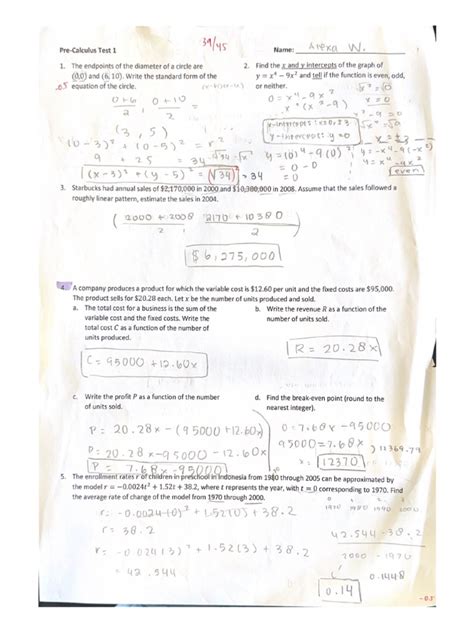 39/45
Pre-Calculus Test 1
Name: Alexa W.
1. The endpoints of the diameter of a circle are
(0,0) and (6, 10). Write the standard form of the
equation of the circle.
0+6 , 0+10
2 , 2
(3, 5)
(0-3)² + (0-5)² = r²
9 + 25 = 34
(x-3)² + (y-5)² = 34
34
2. Find the x and y intercepts of the graph of
y = x⁴ - 9x² and tell if the function is even, odd,
or neither.
0 = x⁴ - 9x²
x² (x² - 9)
x² = 0
x = 0
x = ±3
x-intercepts
y-intercept: y=0
y = (0)⁴ - 9(0)²
= 0 - 0
= 0
even
3. Starbucks had annual sales of $2,170,000 in 2000 and $10,380,000 in 2008. Assume that the sales followed a
roughly linear pattern, estimate the sales in 2004.
( 2000 + 2008 , 2170 + 10380 )
2 , 2
$6,275,000
4. A company produces a product for which the variable cost is $12.60 per unit and the fixed costs are $95,000.
The product sells for $20.28 each. Let x be the number of units produced and sold.
a. The total cost for a business is the sum of the
variable cost and the fixed costs. Write the
total cost C as a function of the number of
units produced.
C = 95000 + 12.60x
b. Write the revenue R as a function of the
number of units sold.
R = 20.28x
c. Write the profit P as a function of the number
of units sold.
P = 20.28x - (95000 + 12.60x)
P = 20.28x - 95000 - 12.60x
P = 7.68x - 95000
d. Find the break-even point (round to the
nearest integer).
0 = 7.68x - 95000
95000 = 7.68x
12369.79
12370
5. The enrollment rates r of children in preschool in Indonesia from 1980 through 2005 can be approximated by
the model r = -0.0024t² + 1.52t + 38.2, where t represents the year, with t = 0 corresponding to 1970. Find
the average rate of change of the model from 1970 through 2000.
r = -0.0024(0)² + 1.52(0) + 38.2
r = 38.2
r = -0.024(3)² + 1.52(3) + 38.2
= 42.544
0 1 2 3
1970 1980 1990 2000
42.544 - 38.2
2000 - 1970
0.1448
0.14
-0.5